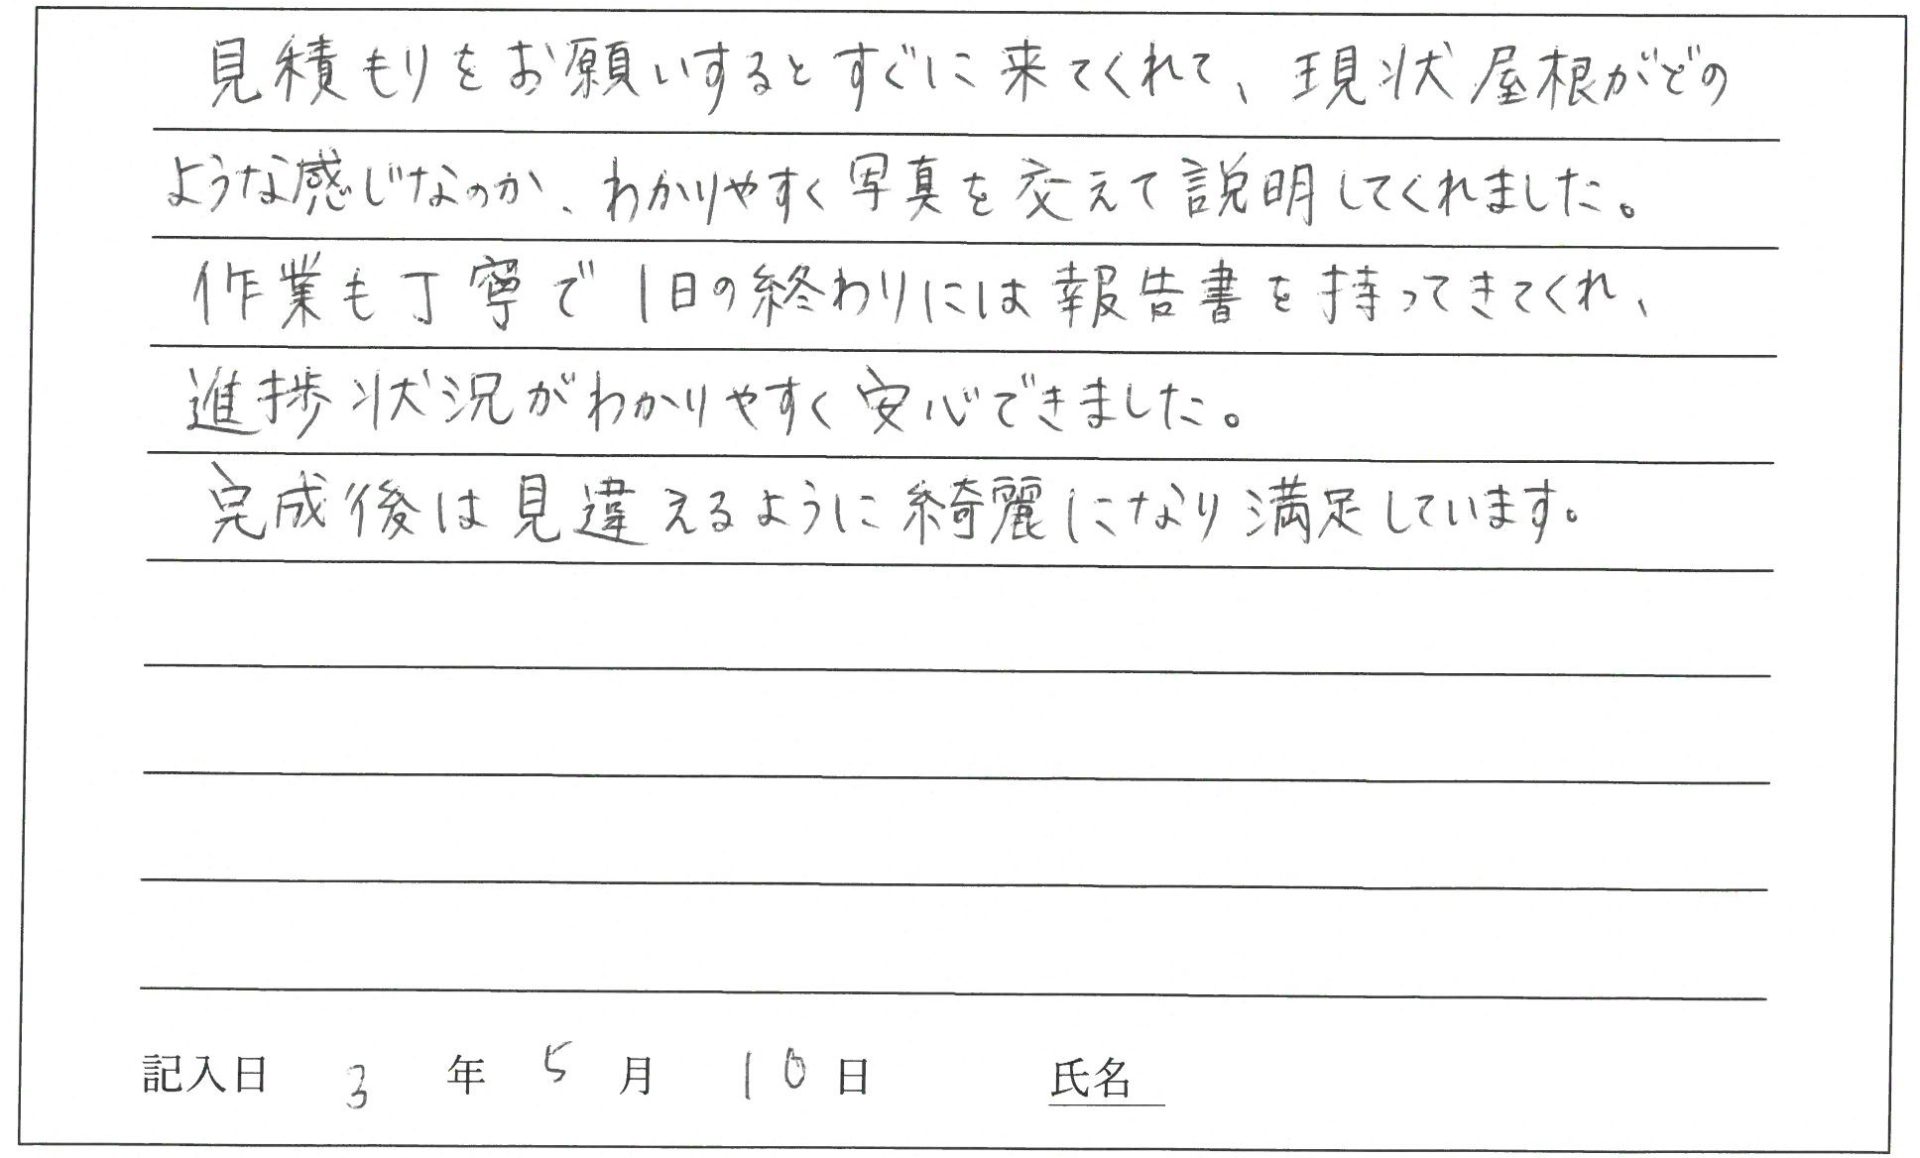 見積もりをお願いするとすぐに来てくれて、現状屋根がどの
ような感じなのか、わかりやすく写真を交えて説明してくれました。
作業も丁寧で1日の終わりには報告書を持ってきてくれ、
進捗状況がわかりやすく安心できました。
完成後は見違えるように綺麗になり満足しています。
記入日 3 年 5 月 10 日 氏名